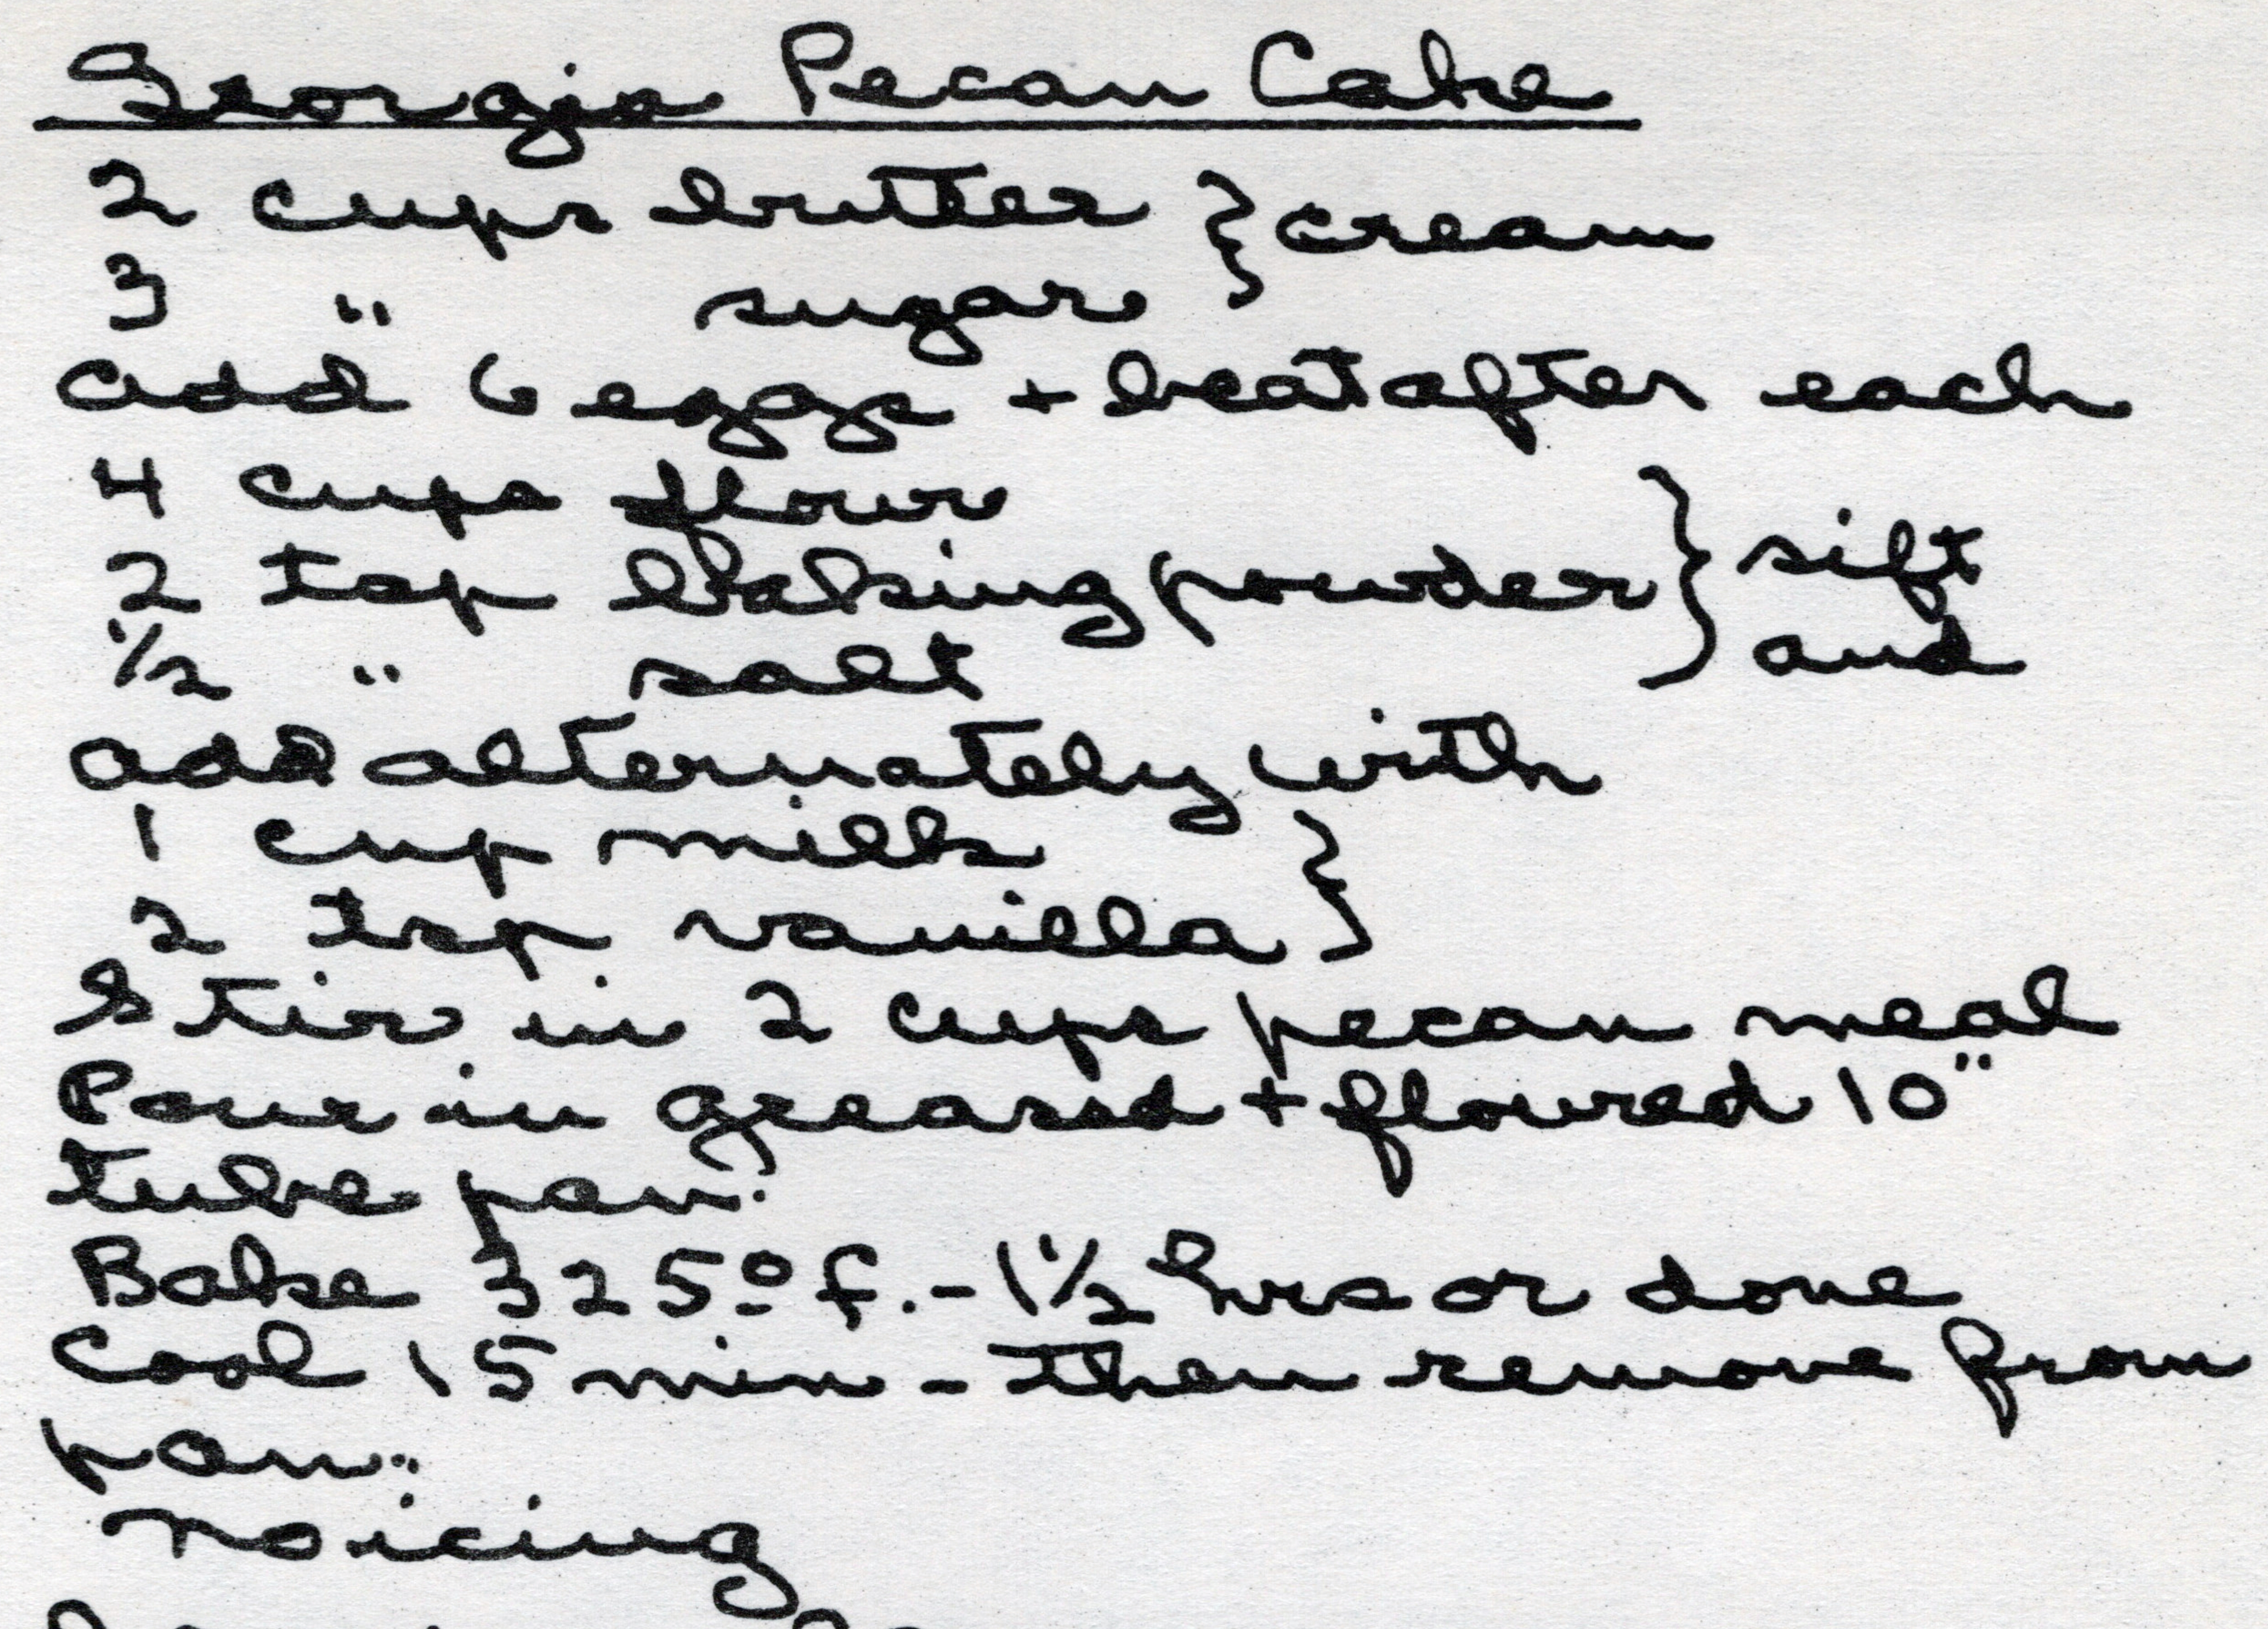 Georgia Pecan Cake
2 cups butter } cream
3 " sugar
add 6 eggs + beat after each
4 cups flour
2 tsp baking powder } sift
1/2 " salt and
add alternately with
1 cup milk }
2 tsp vanilla
Stir in 2 cups pecan meal
Pour in greased + floured 10"
tube pan.
Bake 325º f. - 1 1/2 hrs or done
Cool 15 min - then remove from
pan.
no icing